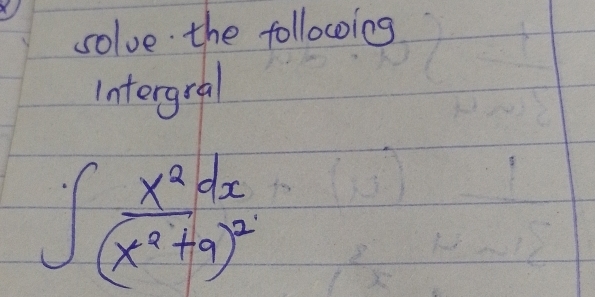 solve. the following
Intergral
∫ x² dx
(x² + 9)²